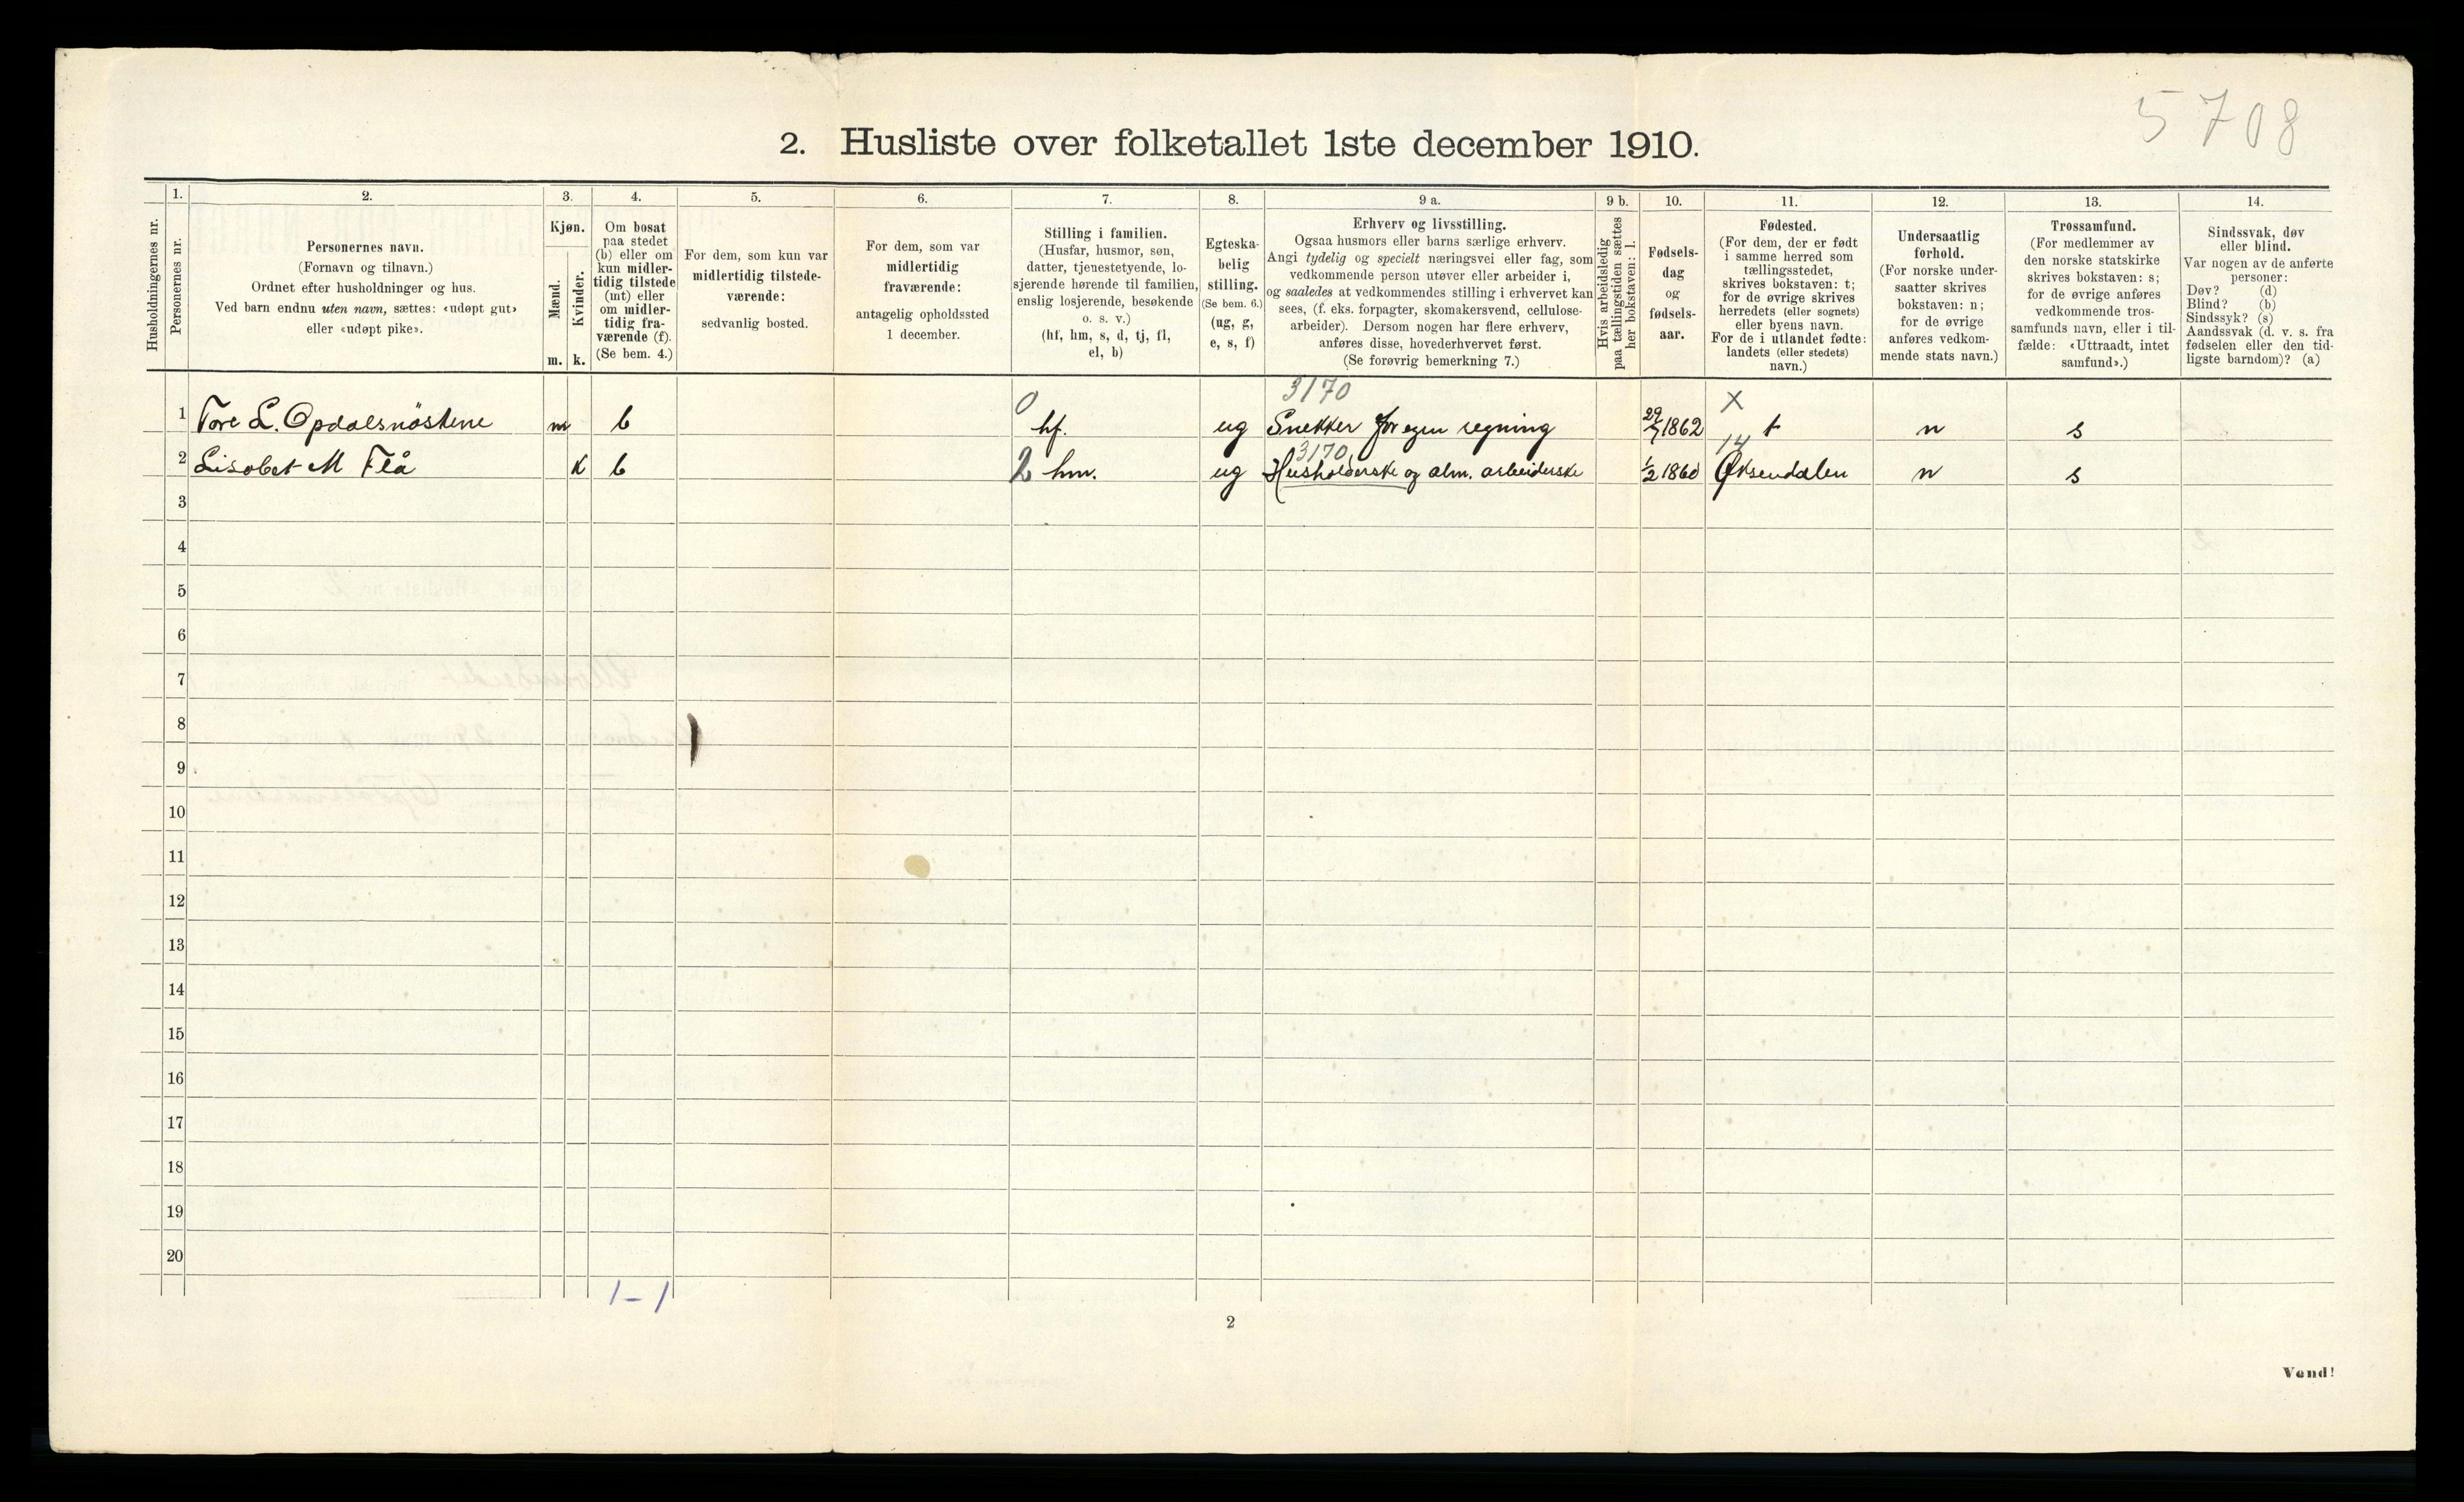 5708
2. Husliste over folketallet 1ste december 1910.
Husholdningernes nr.
1.
Personernes nr.
2.
Personernes navn.
(Fornavn og tilnavn.)
Ordnet efter husholdninger og hus.
Ved barn endnu uten navn, sættes: «udøpt gut»
eller «udøpt pike».
3.
Kjøn.
Mænd.
Kvinder.
m. k.
4.
Om bosat
paa stedet
(b) eller om
kun midler-
tidig tilstede
(mt) eller
om midler-
tidig fra-
værende (f).
(Se bem. 4.)
5.
For dem, som kun var
midlertidig tilstede-
værende:
sedvanlig bosted.
6.
For dem, som var
midlertidig
fraværende:
antagelig opholdssted
1 december.
7.
Stilling i familien.
(Husfar, husmor, søn,
datter, tjenestetyende, lo-
sjerende hørende til familien,
enslig losjerende, besøkende
o. s. v.)
(hf, hm, s, d, tj, fl,
el, b)
8.
Egteska-
belig
stilling.
(Se bem. 6.)
(ug, g,
e, s, f)
9 a.
Erhverv og livsstilling.
Ogsaa husmors eller barns særlige erhverv.
Angi tydelig og specielt næringsvei eller fag, som
vedkommende person utøver eller arbeider i,
og saaledes at vedkommendes stilling i erhvervet kan
sees, (f. eks. forpagter, skomakersvend, cellulose-
arbeider). Dersom nogen har flere erhverv,
anføres disse, hovederhvervet først.
(Se forøvrig bemerkning 7.)
9 b.
Hvis arbeidsledig
paa tællingstiden sættes
her bokstaven: l.
10.
Fødsels-
dag
og
fødsels-
aar.
11.
Fødested.
(For dem, der er født
i samme herred som
tællingsstedet,
skrives bokstaven: t;
for de øvrige skrives
herredets (eller sognets)
eller byens navn.
For de i utlandet fødte:
landets (eller stedets)
navn.)
12.
Undersaatlig
forhold.
(For norske under-
saatter skrives
bokstaven: n;
for de øvrige
anføres vedkom-
mende stats navn.)
13.
Trossamfund.
(For medlemmer av
den norske statskirke
skrives bokstaven: s;
for de øvrige anføres
vedkommende tros-
samfunds navn, eller i til-
fælde: «Uttraadt, intet
samfund».)
14.
Sindssvak, døv
eller blind.
Var nogen av de anførte
personer:
Døv? (d)
Blind? (b)
Sindssyk? (s)
Aandssvak (d. v. s. fra
fødselen eller den tid-
ligste barndom)? (a)
0 3170 X
1 Tore L. Opdalsnöstene m b hf. ug Snekker for egen regning 29/7 1862 t n s
3170 14
2 Lisabet M Flå k b 2 hm. ug Husholderske og alm. arbeiderske 1/2 1860 Øksendalen n s
3
4
5
6
7
8
9
10
11
12
13
14
15
16
17
18
19
20
1-1
2
Vend!